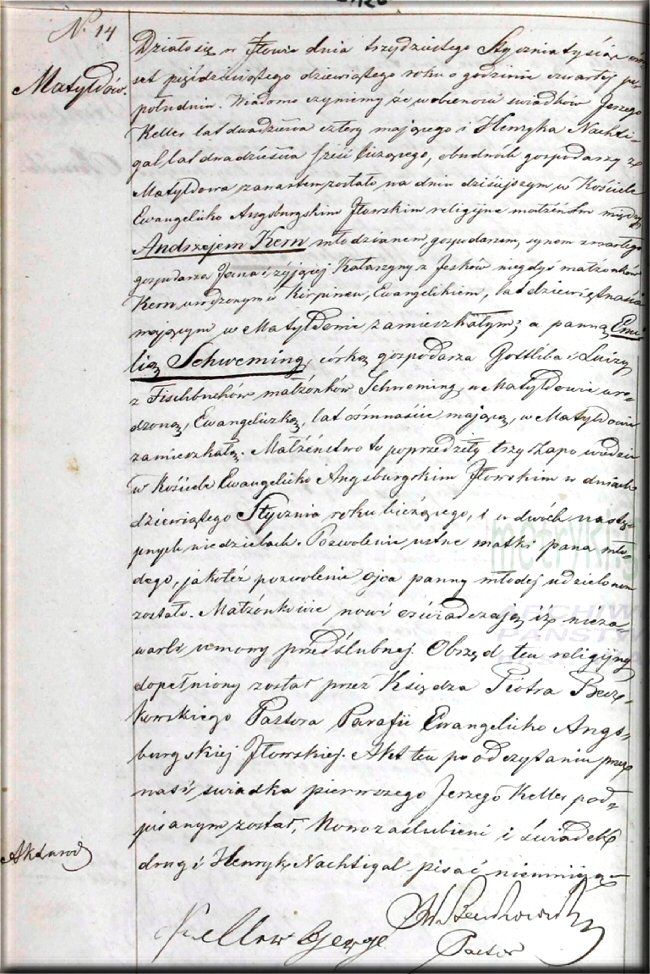 N. 14
Matyldów.
Działo się w Iłowie dnia trzydziestego Stycznia tysiąc ośm
set pięćdziesiątego dziewiątego roku o godzinie czwartej po
południu. Wiadomo czynimy że w obecności świadków Jerzego
Keller lat dwadzieścia cztery mającego i Henryka Nachti-
gal lat dwadzieścia sześć liczącego, obudwóch gospodarzy z
Matyldowa zawartem zostało na dniu dzisiejszym w Kościele
Ewangelicko Augsburgskim Iłowskim religijne małżeństwo między
Andrzejem Kern młodzianem, gospodarzem, synem zmarłego
gospodarza Jana i żyjącej Katarzyny z Jesków niegdyś małżonków
Kern, urodzonym w Ewangelikiem, lat dziewiętnaście
mającym w Matyldowie zamieszkałym; a panną Emi
lią Schweming, córką gospodarza Gottliba i Luizy
z Fischbuchów małżonków Schweming, w Matyldowie uro-
dzoną, Ewangeliczką, lat ośmnaście mającą, w Matyldowie
zamieszkałą. Małżeństwo to poprzedziły trzy zapowiedzie
w Kościele Ewangelicko Augsburgskim Iłowskim w dniach
dziewiątego Stycznia roku bieżącego, i w dwóch nastę-
pnych niedzielach. Pozwolenie ustne matki pana mło-
dego, jakoteż pozwolenie ojca panny młodej udzielonem
zostało. Małżonkowie nowi oświadczają iż nieza
warli umowy przedślubnej. Obrzęd ten religijny
dopełniony został przez Księdza Piotra
Pastora Parafii Ewangelicko Augs-
burgskiej Iłowskiej. Akt ten po odczytaniu przez
nas i świadka pierwszego Jerzego Keller pod-
pisanym został, Nowozaślubieni i świadek
drugi Henryk Nachtigal pisać nieumieją
Keller
Pastor